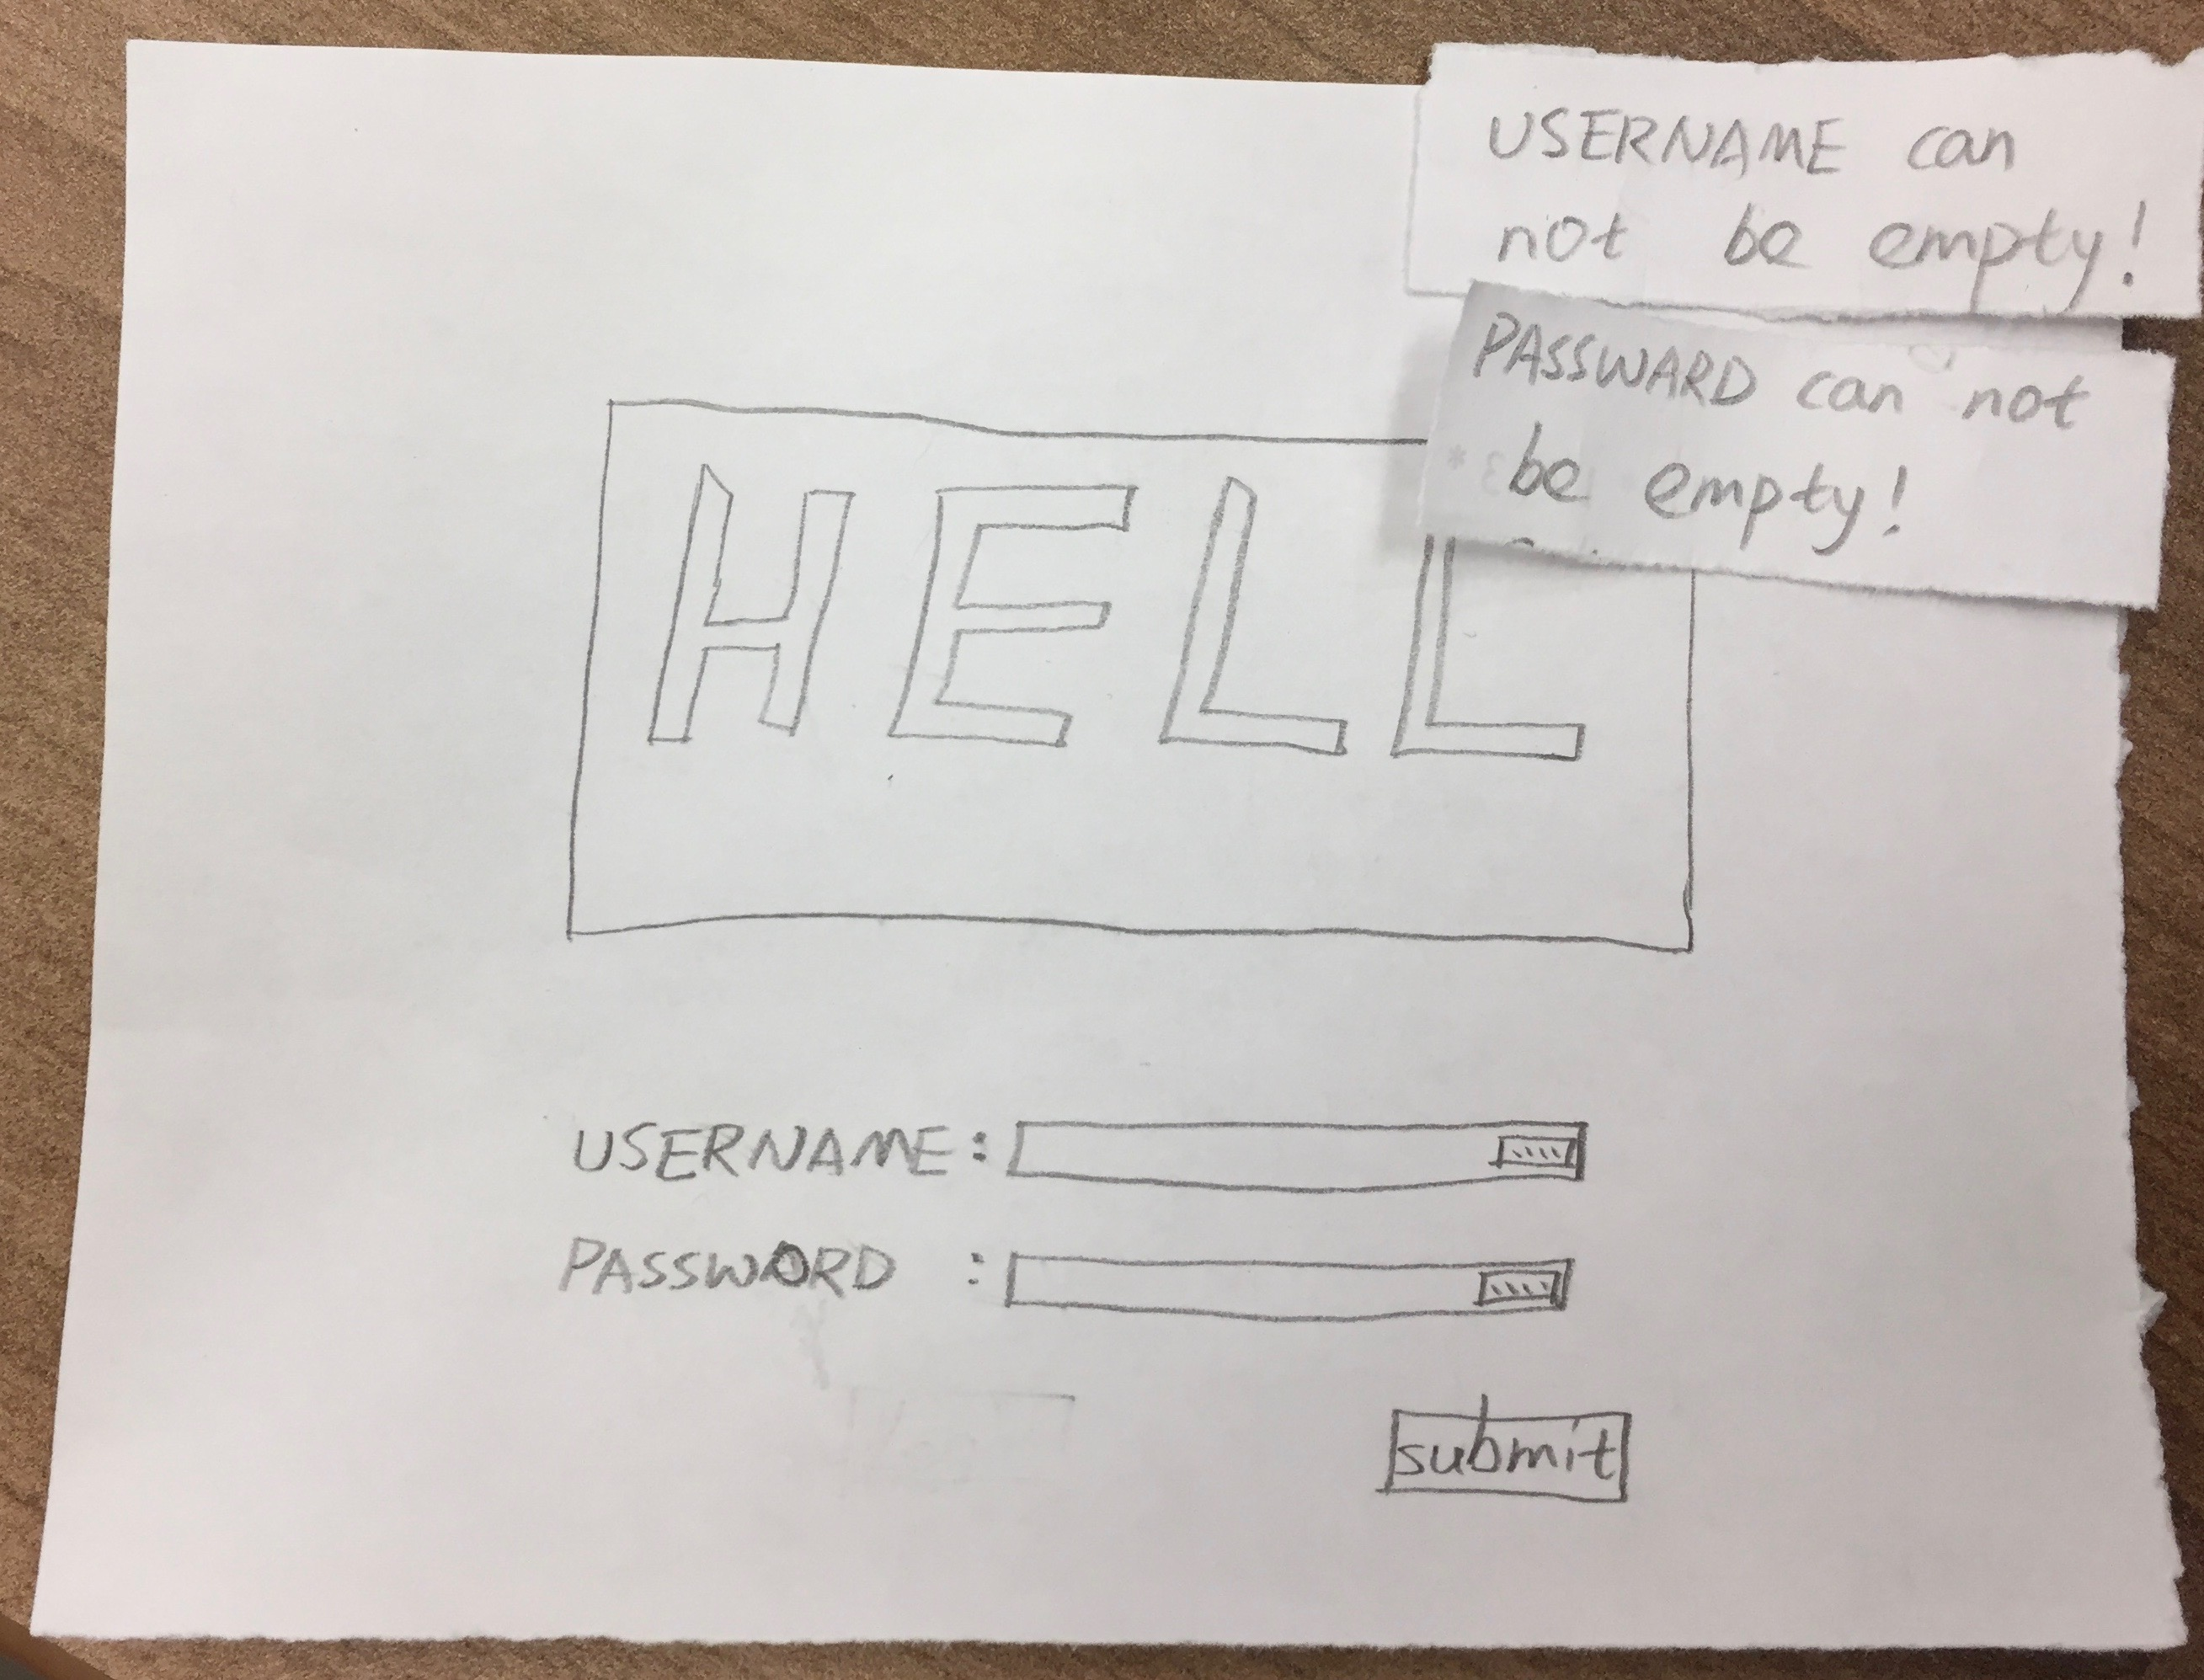 USERNAME can
not be empty!
PASSWARD can not
be empty!
HELL
USERNAME:
PASSWORD :
submit